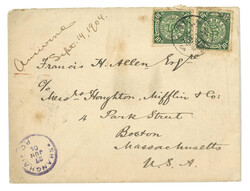 Sept. 14, 1904.
Francis H. Allen Esqre
c/o Messrs Houghton, Mifflin & Co:
4 Park Street
Boston
Massachusetts
U.S.A.
SHANGHAI